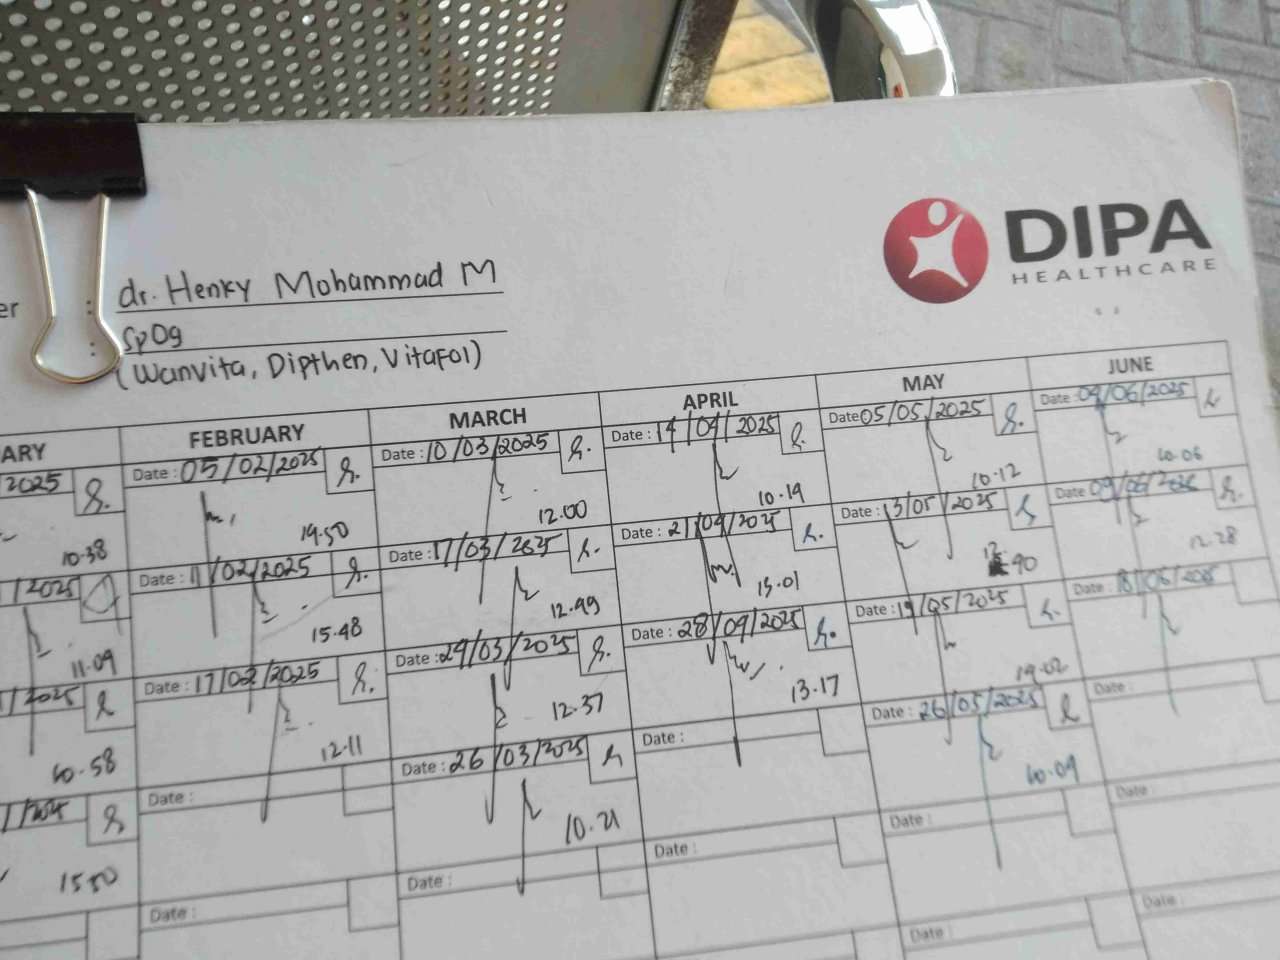 DIPA
HEALTHCARE
er : dr. Henky Mohammad M
: SpOg
(Wanvita, Dipthen, Vitafol)
ARY FEBRUARY MARCH APRIL MAY JUNE
2025 Date : 05/02/2025 Date : 10/03/2025 Date : 14/04/2025 Date 05/05/2025 Date : 04/06/2025
10.38 19.50 12.00 10.19 10.12 10.06
/2025 Date : 11/02/2025 Date : 17/03/2025 Date : 21/04/2025 Date : 13/05/2025 Date 09/06/2025
11.09 15.48 12.49 13.01 12.28
/2025 Date : 17/02/2025 Date : 24/03/2025 Date : 28/04/2025 Date : 19/05/2025 Date : 18/06/2025
10.58 12.11 12.37 13.17 14.02
Date : Date : 26/03/2025 Date : Date : 26/05/2025 Date :
15.50 10.21 10.09
Date : Date : Date : Date : Date :
Date : Date :